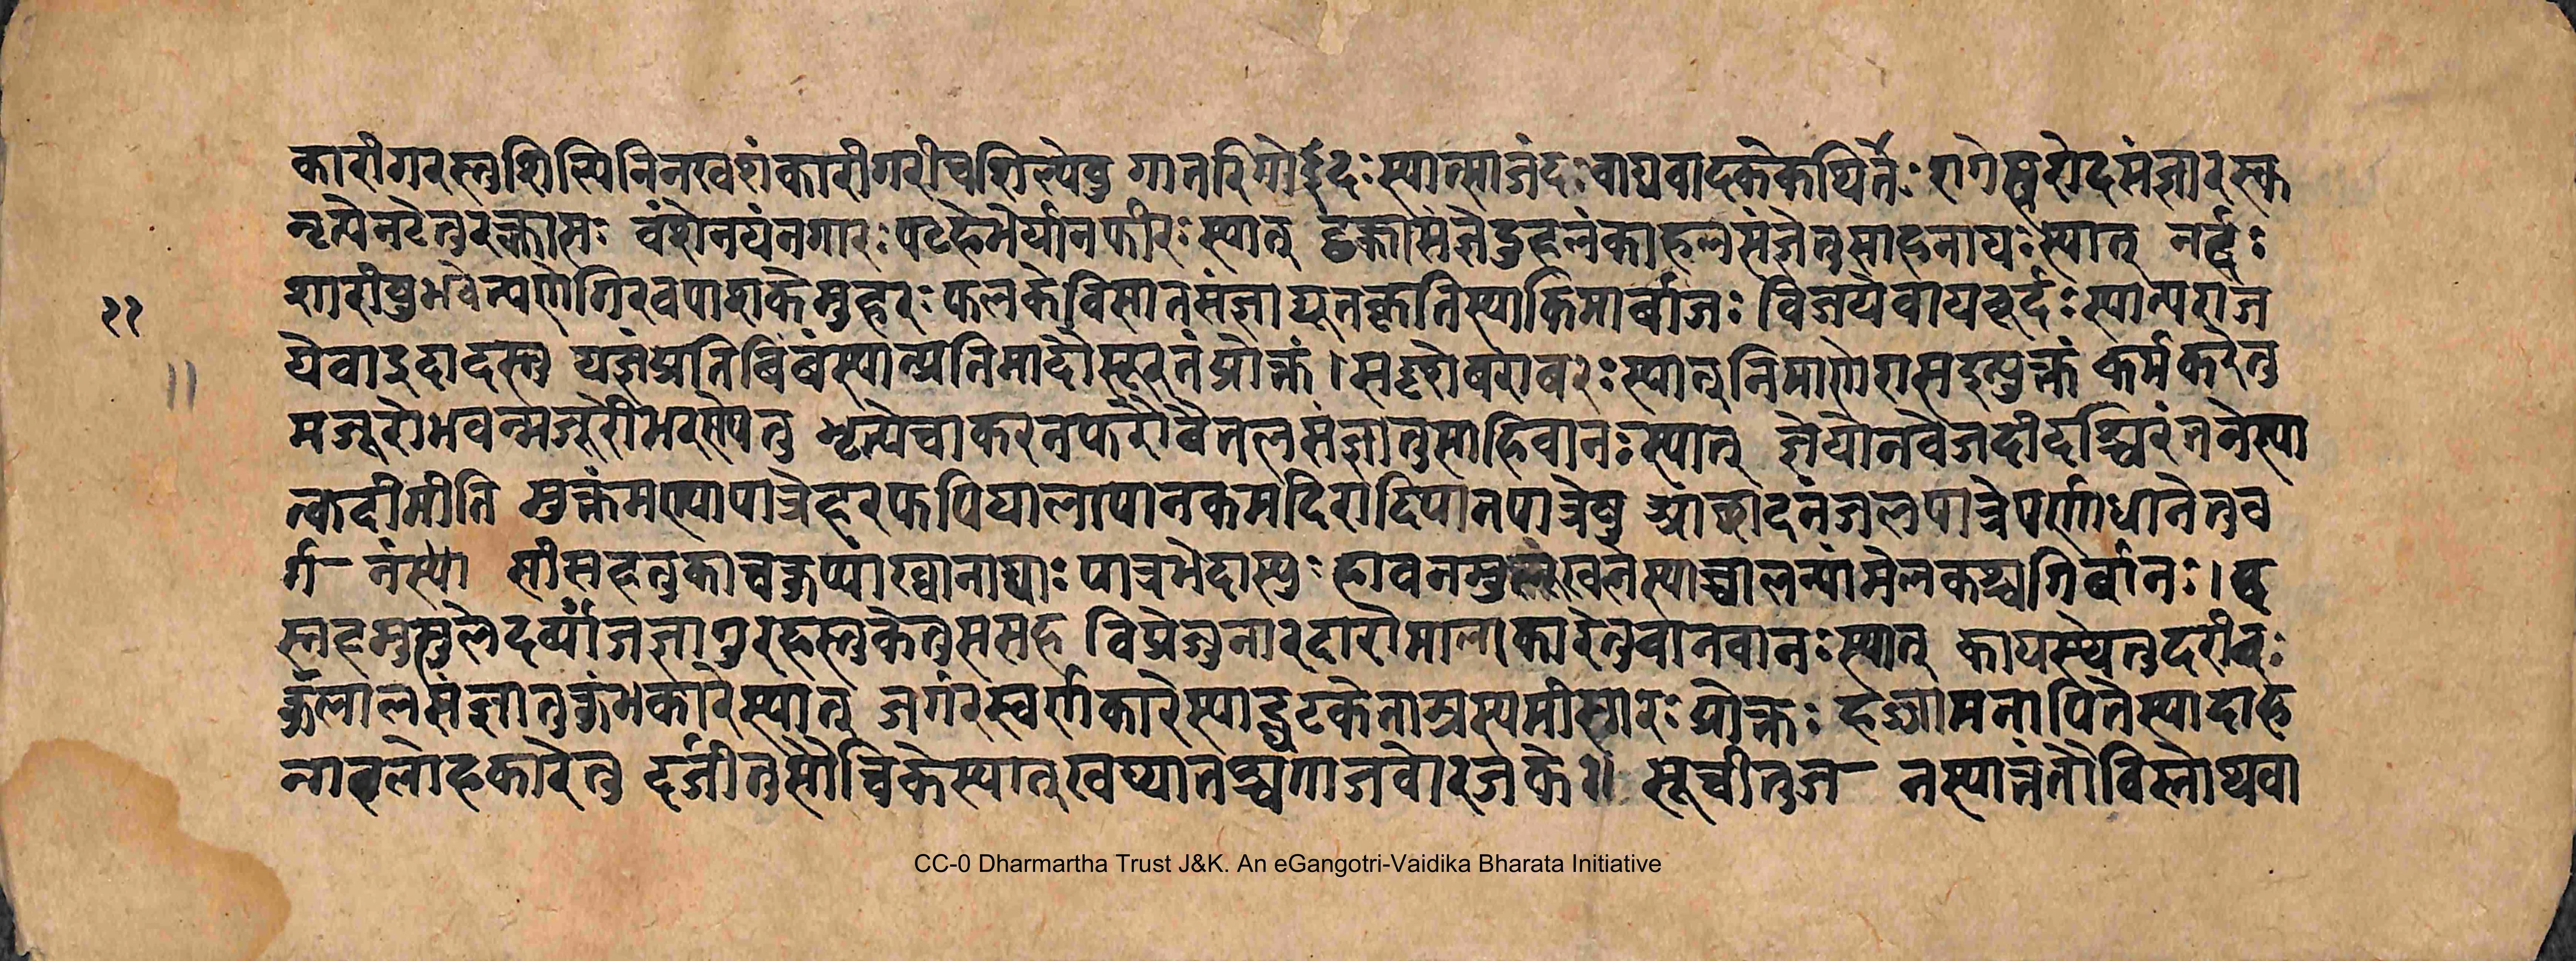 कारीगरस्तुशिल्पिनिनखशंकारीगरीचशिल्पेषु गातरिगोइंदःस्यात्साजंदःवाद्यवादकेकथितः रागेस्वरोदसंज्ञारस्क
नृत्येनटेतुरक्कासः वंशेनयंनगारःपटहेभेर्यांनफीरःस्यात् ढक्कासंज्ञेदुहलंकाहलसंज्ञेतुसाहनायःस्यात् नर्दः
२२
शारीषुभवेत्पणेगिरवपाशकेमुहरःफलकेविसातसंज्ञा द्यूतकृतिस्यात्किमार्बाजः विजयेवायचूर्दःस्यात्पराज
येवाइदादस्तु यज्ञंप्रतिबिंबंस्यात्प्रतिमादौसूरतंप्रोक्तं।सदृशेबराबरःस्यात्तुनिर्माणेरासदुत्युक्तं कर्मकरेतु
मजूरोभवन्मजूरीभरसेपतु भृत्येचाकरनफरौवैतलसंज्ञातुसाहिवानःस्यात् ज्ञेयोनवैजदीदश्चिरंतनेस्या
त्कदीमीति मुक्तंमण्यापात्रेहरफपियालापानकमदिरादिपानपात्रेषु आछादनंजलपात्रेपर्णाधानेतुव
र्ग नंस्या सीसहतुकाचकूप्यांखानाद्याःपात्रभेदास्युः हावनमुलूखलेस्याच्चालन्यांमेलकश्चगिर्बानः।द
स्तहमुसुलेदर्व्यांजज्ञापुरहस्तुकेतुससह विप्रेजुनारदारोमालाकारेतुबानवानःस्यात् कायस्थेतुदरीबुः
कुलालसंज्ञातुकुंभकारेस्यात् जर्गरस्वर्णकारेस्याद्घटकेताम्रस्यमीस्गारःप्रोक्तः हज्जामनापितेस्यादाह
न्गरलोहकारेतु दर्जीतुसौचिकेस्यात्तुखय्यातश्चगाजवोरजके।। सूचीतुज नस्यान्नंतौविस्नोथवा
CC-0 Dharmartha Trust J&K. An eGangotri-Vaidika Bharata Initiative